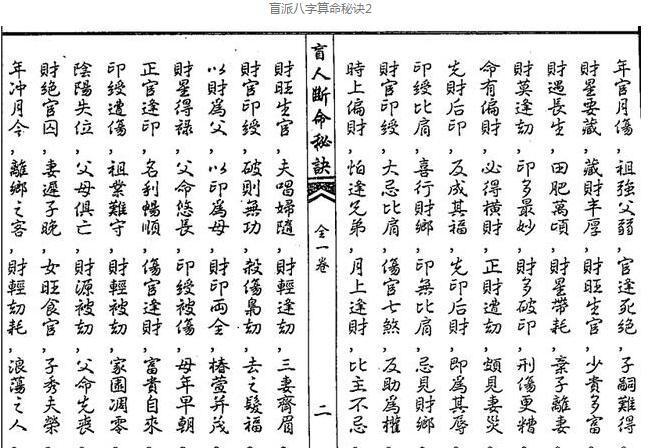 盲派八字算命秘诀2
年官月傷,祖強父弱,官逢死絕,子嗣難得
財星要藏,藏財丰厚,財旺生官,少貴多富
財遇長生,田肥萬頃,財星帶耗,棄子離妻
財莫逢劫,印多最妙,財多破印,刑傷更糟
命有偏財,必得橫財,正財遭劫,頗見妻災
先財后印,反成其福,先印后財,即為其辱
印綬比肩,喜行財鄉,印無比肩,忌見財鄉
財官印綬,大忌比肩,傷官七煞,反助為權
時上偏財,怕逢兄弟,月上逢財,比主不忌
盲人斷命秘訣 全一卷 二
財旺生官,夫唱婦隨,財輕逢劫,三妻齊眉
財官印綬,破則無功,殺傷梟劫,去之髮福
以財為父,以印為母,財印兩全,椿萱并茂
財星得祿,父命悠長,印綬被傷,母年早朝
正官逢印,名利暢順,傷官逢財,富貴自來
印綬遭傷,祖業難守,財輕被劫,家園凋零
陰陽失位,父母俱亡,財源被劫,父命先喪
財絕官囚,妻遲子晚,女旺食官,子秀夫榮
年冲月令,離鄉之客,財輕劫耗,浪蕩之人